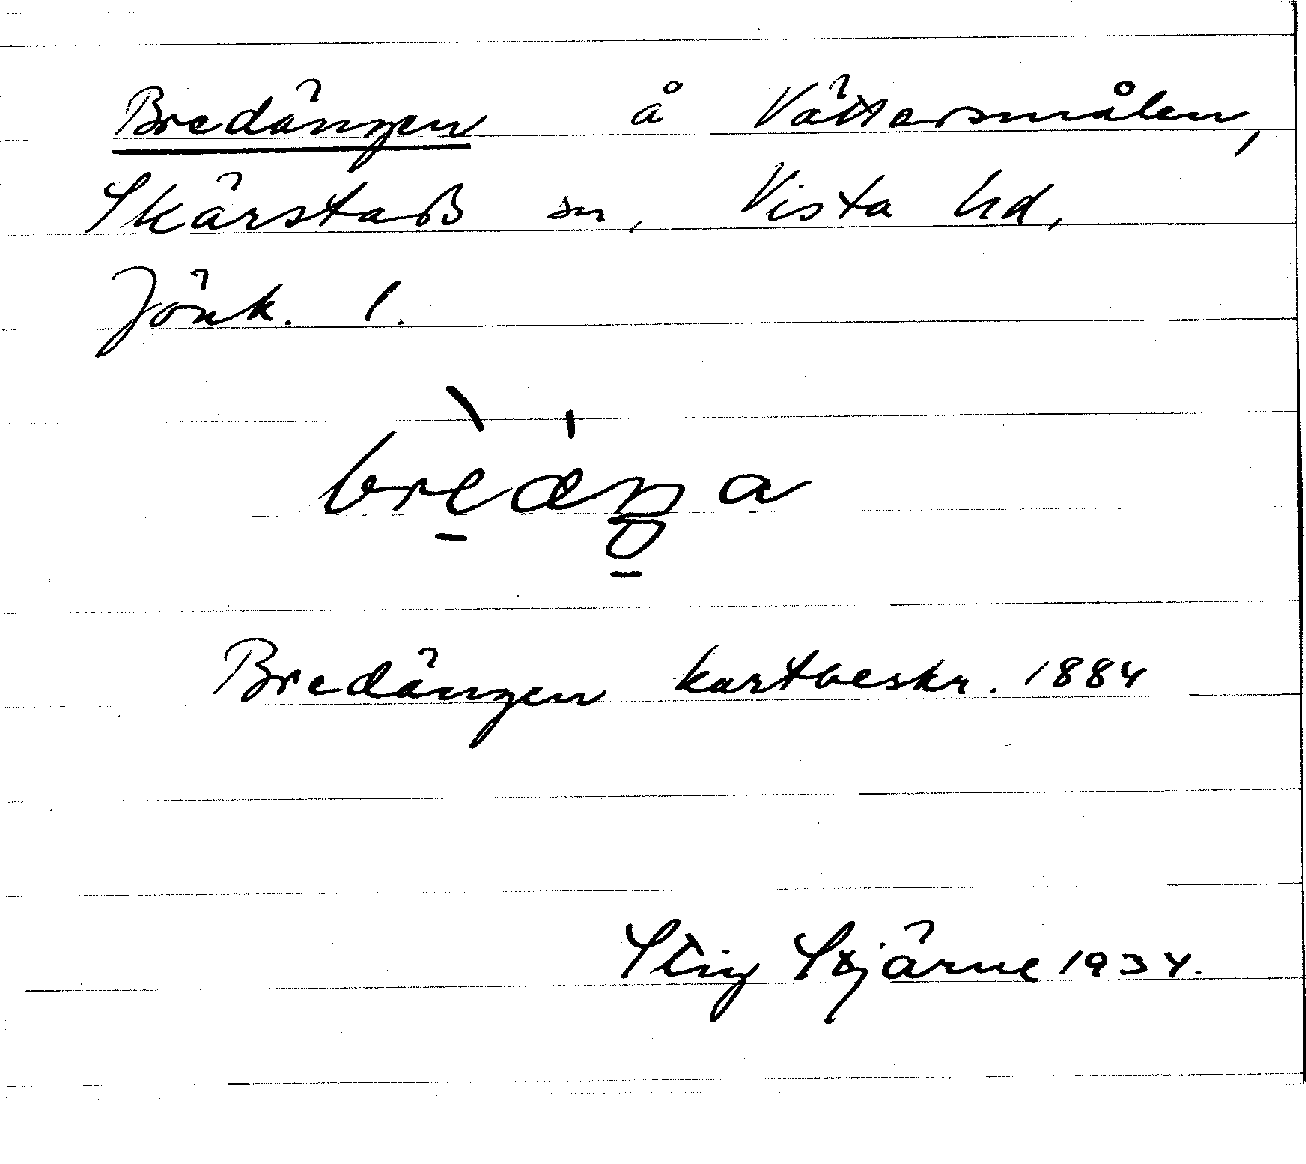 Bredängen å Vättersmålen,
Skärstads sn, Vista hd,
Jönk. l.
brèǽŋa
Bredängen kartbeskr. 1884
Stig Stjärne 1934.